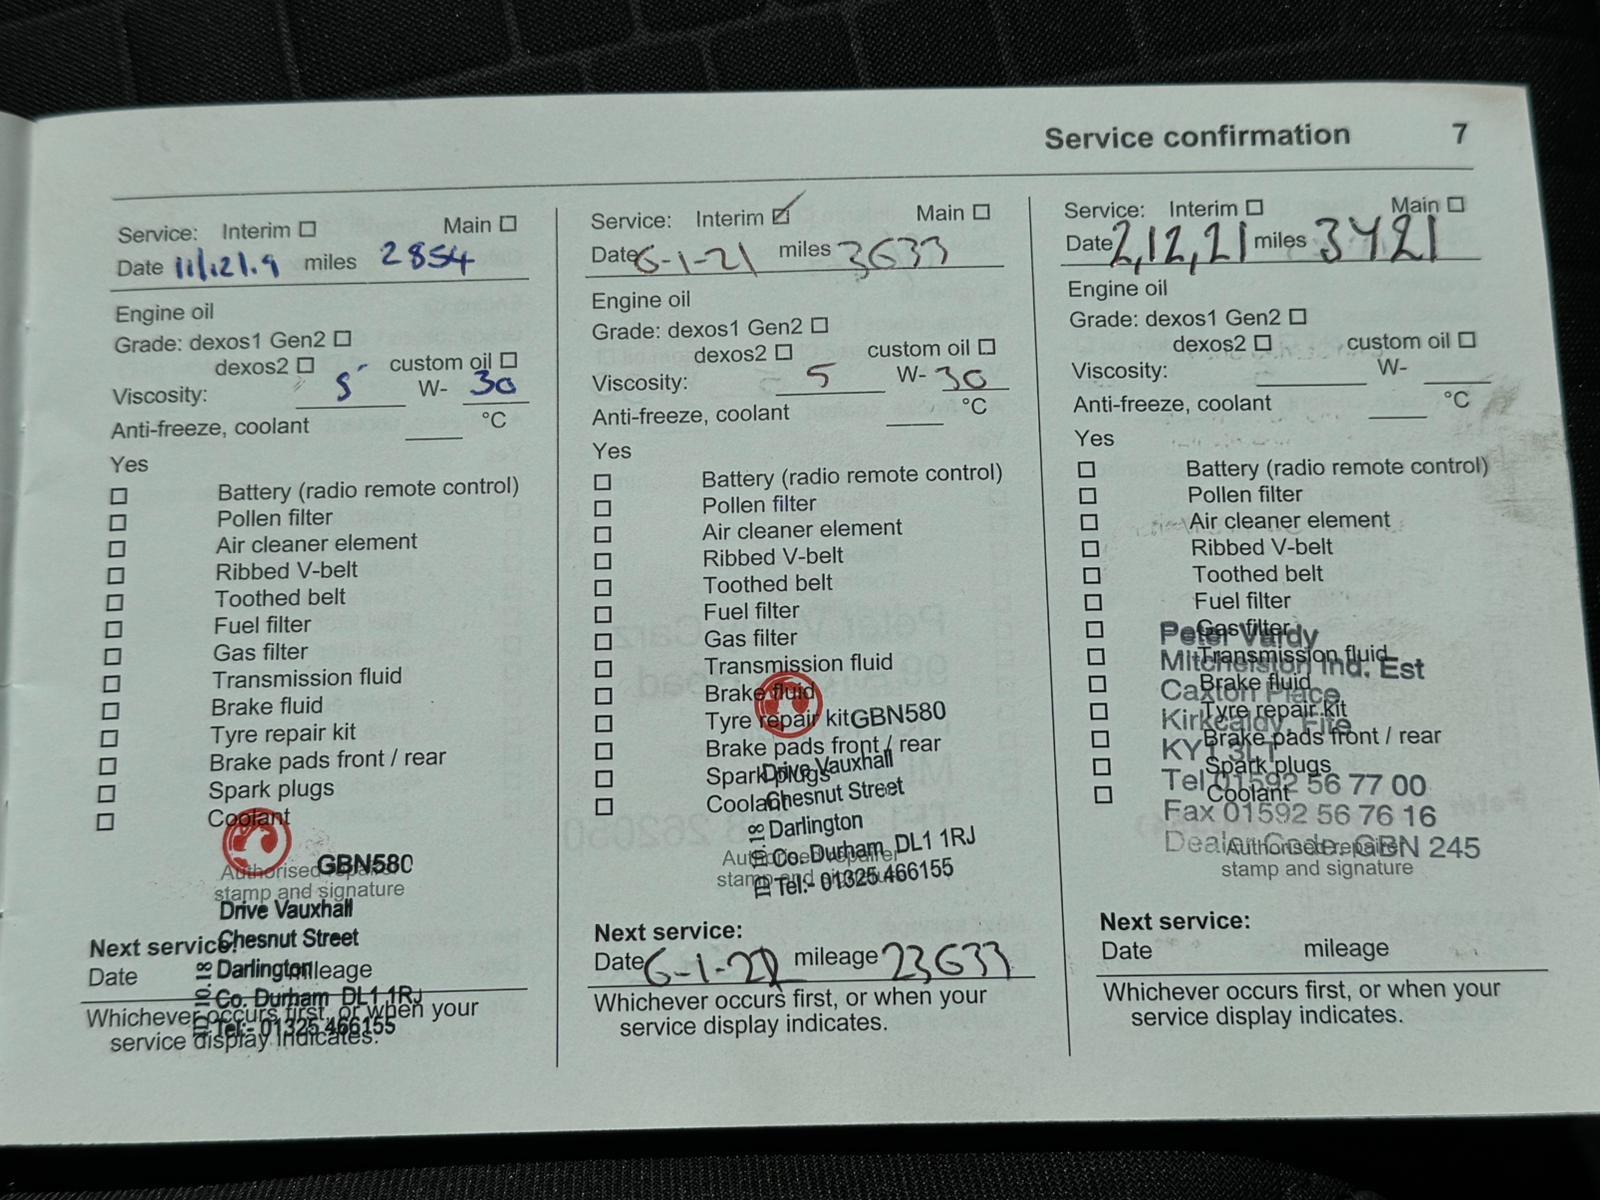 Service confirmation 7
Service: Interim ☐ Main ☐
Date 11/12.9 miles 2854
Engine oil
Grade: dexos1 Gen2 ☐
dexos2 ☐ custom oil ☐
Viscosity: 5 W- 30
Anti-freeze, coolant ____ °C
Yes
☐ Battery (radio remote control)
☐ Pollen filter
☐ Air cleaner element
☐ Ribbed V-belt
☐ Toothed belt
☐ Fuel filter
☐ Gas filter
☐ Transmission fluid
☐ Brake fluid
☐ Tyre repair kit
☐ Brake pads front / rear
☐ Spark plugs
☐ Coolant
GBN580
Authorised repairer
stamp and signature
Drive Vauxhall
Next service:
Chesnut Street
Date mileage
Darlington
Co. Durham DL1 1RJ
Whichever occurs first, or when your
Tel:- 01325 466155
service display indicates.
Service: Interim ☑ Main ☐
Date 6-1-21 miles 3633
Engine oil
Grade: dexos1 Gen2 ☐
dexos2 ☐ custom oil ☐
Viscosity: 5 W- 30
Anti-freeze, coolant ____ °C
Yes
☐ Battery (radio remote control)
☐ Pollen filter
☐ Air cleaner element
☐ Ribbed V-belt
☐ Toothed belt
☐ Fuel filter
☐ Gas filter
☐ Transmission fluid
☐ Brake fluid
☐ Tyre repair kit
GBN580
☐ Brake pads front / rear
Drive Vauxhall
☐ Spark plugs
Chesnut Street
☐ Coolant
Darlington
Co. Durham DL1 1RJ
Authorised repairer
stamp and signature
Tel:- 01325 466155
Next service:
Date 6-1-22 mileage 23633
Whichever occurs first, or when your
service display indicates.
Service: Interim ☐ Main ☐
Date 2,12,21 miles 3421
Engine oil
Grade: dexos1 Gen2 ☐
dexos2 ☐ custom oil ☐
Viscosity: ____ W- ____
Anti-freeze, coolant ____ °C
Yes
☐ Battery (radio remote control)
☐ Pollen filter
☐ Air cleaner element
☐ Ribbed V-belt
☐ Toothed belt
☐ Fuel filter
☐ Gas filter
Peter Vardy
☐ Transmission fluid
Mitchelston Ind. Est
☐ Brake fluid
Caxton Place
☐ Tyre repair kit
Kirkcaldy, Fife
☐ Brake pads front / rear
KY1 3LT
☐ Spark plugs
Tel 01592 56 77 00
☐ Coolant
Fax 01592 56 76 16
Dealer Code. GBN 245
Authorised repairer
stamp and signature
Next service:
Date mileage
Whichever occurs first, or when your
service display indicates.